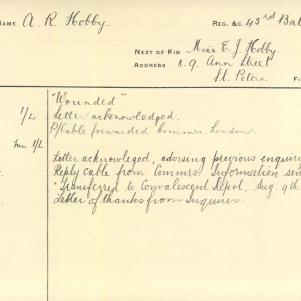 NAME A. R. Hobby. REG. &C. 43rd Bat
NEXT OF KIN Miss E. J. Hobby
ADDRESS 8.9. Ann Street
St. Peters.
"Wounded"
1/L Letter acknowledged.
P/Cable forwarded Commrs. London.
1/L
Letter acknowleged, advising previous enquirie
Reply cable from Commrs. Information sen
"Transferred to Convalescent Depot, Aug. 9th
Letter of thanks from Inquirer.